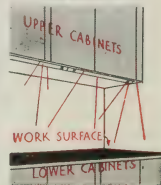 UPPER CABINETS
WORK SURFACE
LOWER CABINETS